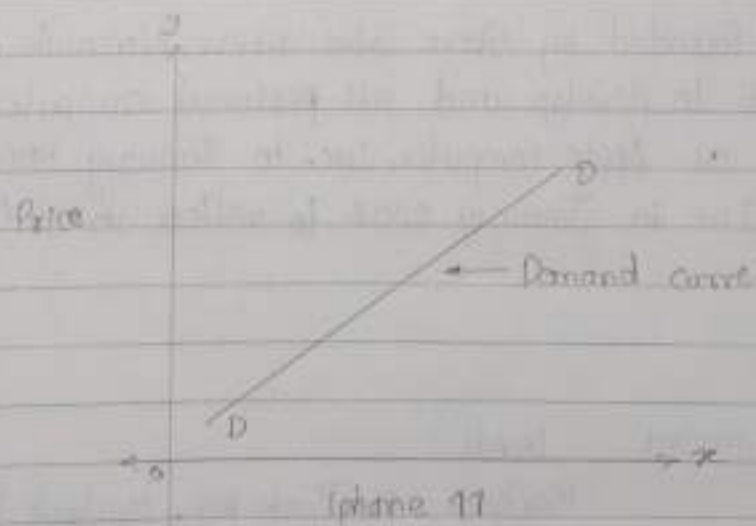 y
D
Price
Demand curve
D
o
x
Iphone 11